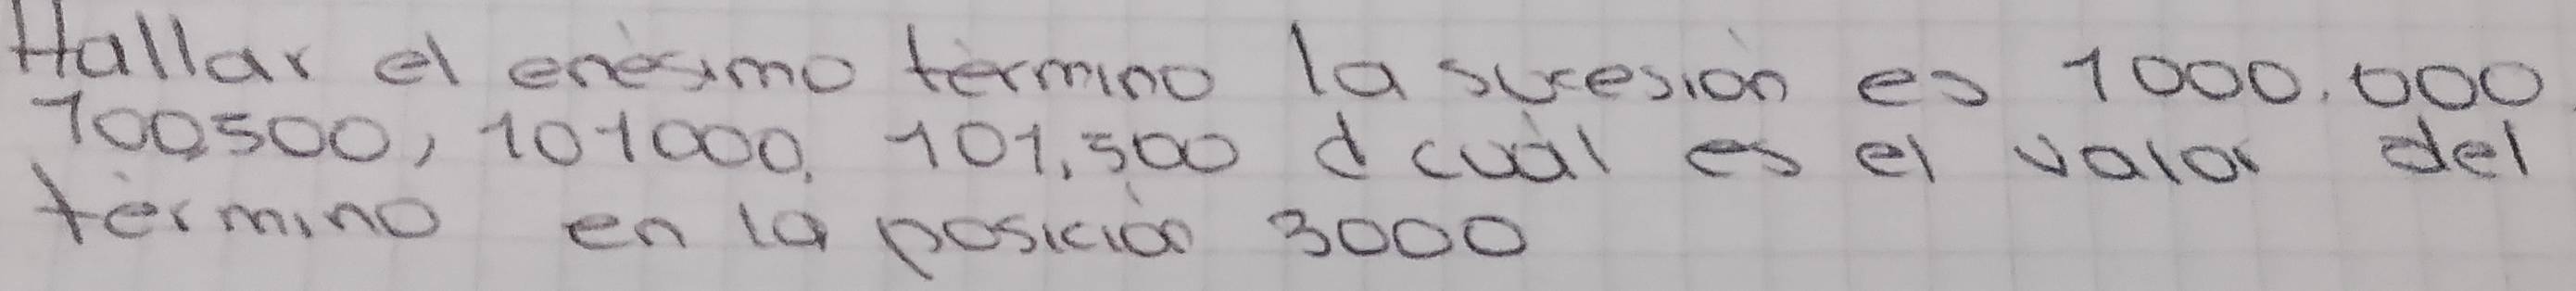 Hallar el enèsimo tèrmino la sucesiòn es 1000.000
100,500, 101000, 101,500 d cuàl es el valor del
tèrmino en la posiciòn 3000